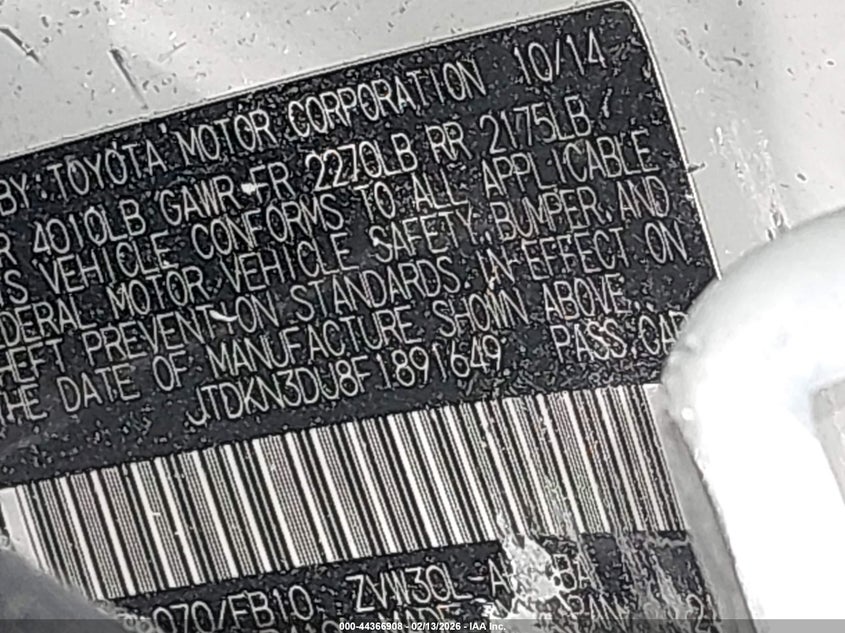 BY: TOYOTA MOTOR CORPORATION 10/14
4010LB GAWR FR 2270LB RR 2175LB
VEHICLE CONFORMS TO ALL APPLICABLE
MOTOR VEHICLE SAFETY, BUMPER, AND
PREVENTION STANDARDS IN EFFECT ON
THE DATE OF MANUFACTURE SHOWN ABOVE.
JTDKN3DU8F1891649 PASS. CAR
070/FB10 ZVW30L-A
000-44366908 - 02/13/2026 - IAA Inc.